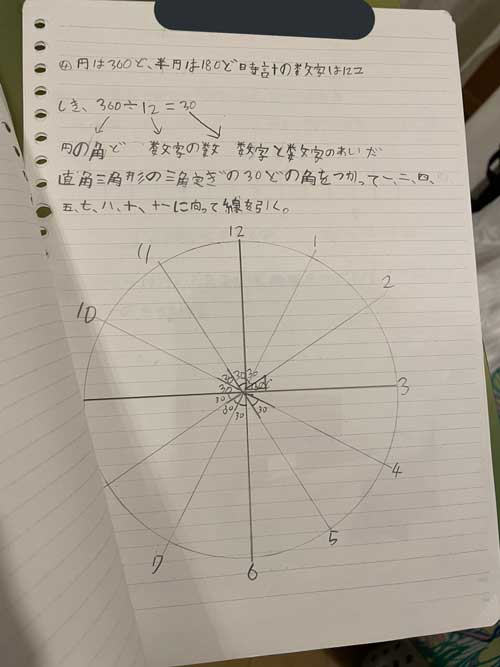 ④円は360ど、半円は180ど時計の数字は12コ
しき、360÷12=30
円の角ど 数字の数 数字と数字のあいだ
直角三角形の三角定ぎの30どの角をつかって一、二、四、
五、七、八、十、十一に向って線を引く。
12
11
1
10
2
30 30 30
30
3
30
30 30 30
4
5
7
6